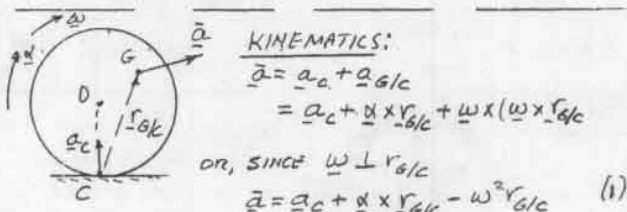 ω
α
ā
G
D
r_G/C
a_C
C
KINEMATICS:
ā = a_C + a_G/C
= a_C + α × r_G/C + ω × (ω × r_G/C
OR, SINCE ω ⊥ r_G/C
ā = a_C + α × r_G/C - ω² r_G/C (1)